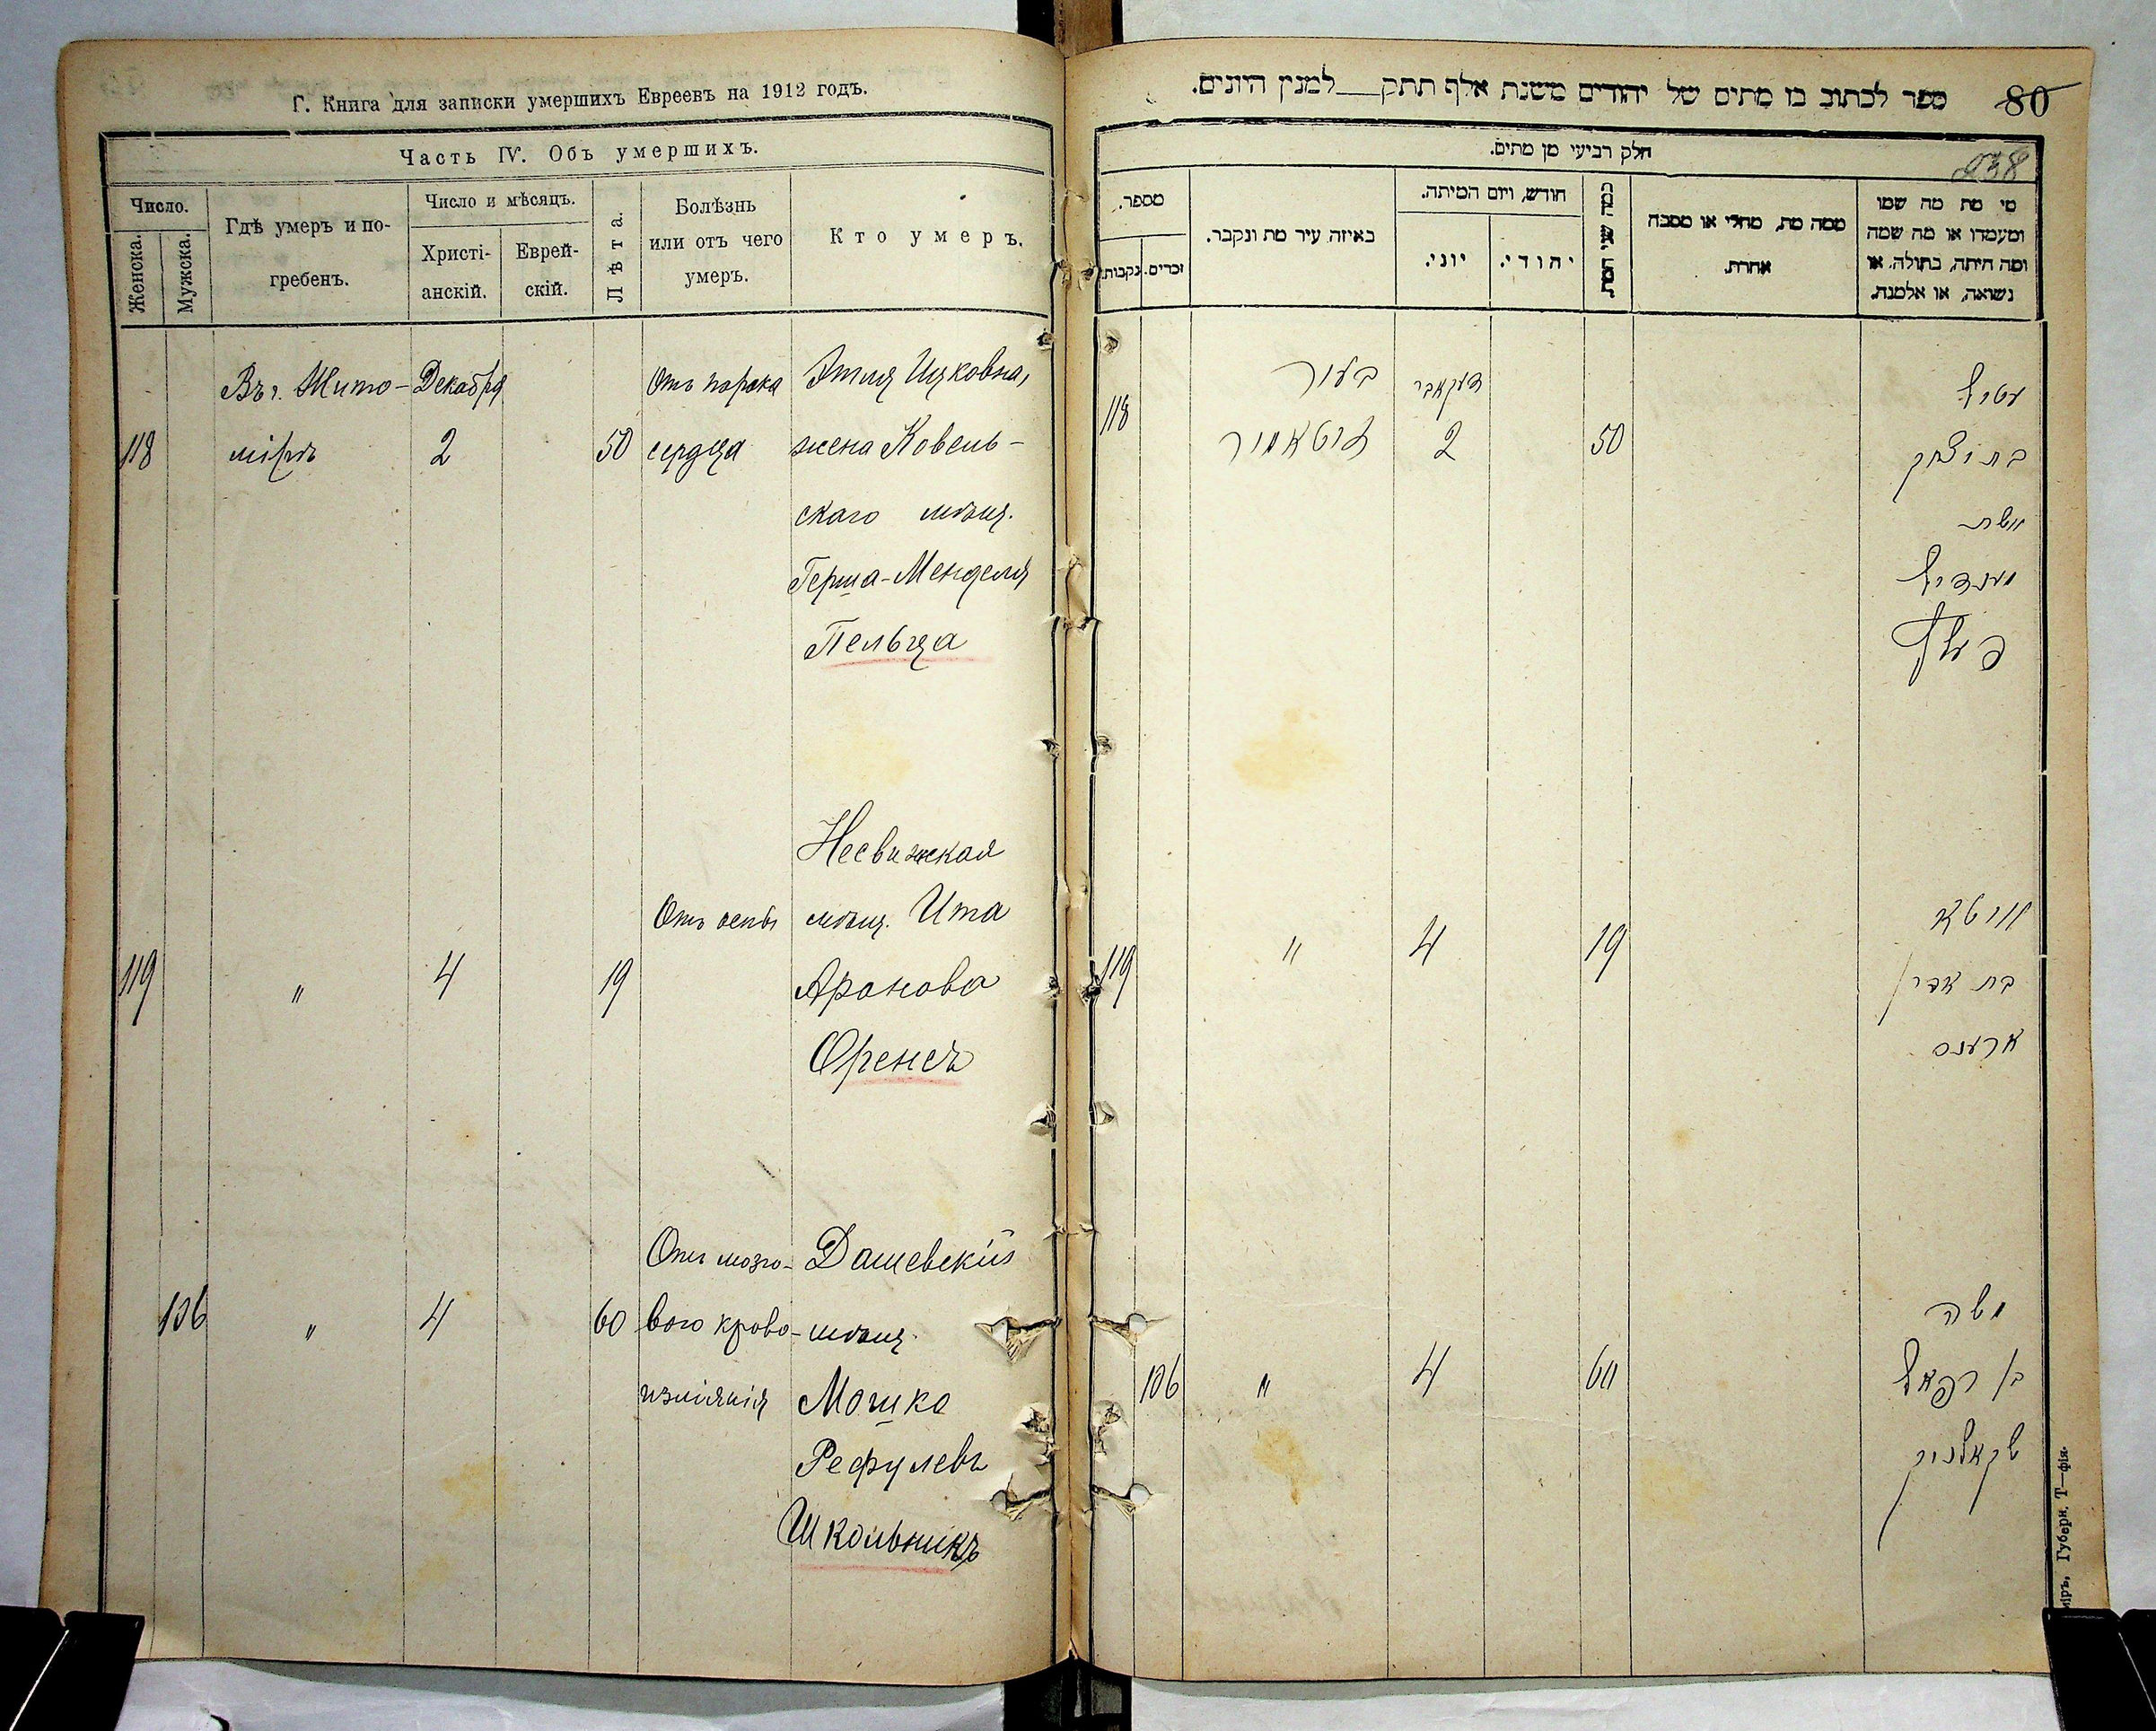 Г. Книга для записки умершихъ Евреевъ на 1912 годъ.
Часть IV. Объ умершихъ.
Число.
Женска.
Мужска.
Гдѣ умеръ и по-
гребенъ.
Число и мѣсяцъ.
Христі-
анскій.
Еврей-
скій.
Лѣта.
Болѣзнь
или отъ чего
умеръ.
Кто умеръ.
Въ г. Жито- Декабря Отъ порока Этля Ицковна,
118 мірѣ 2 50 сердца жена Ковель-
скаго мѣщ.
Герша-Менделя
Пельца
Несвижская
Отъ оспы мѣщ. Ита
119 " 4 19 Аронова
Оренсъ
Отъ мозго- Дашевскій
106 " 4 60 вого крово- мѣщ.
изліянія Мошко
Рефулевъ
Школьникъ
80
ספר לכתוב בו מתים של יהודים משנת אלף תתק למנין היונים.
238
חלק רביעי מן מתים.
מספר.
נקבות.
זכרים.
באיזה עיר מת ונקבר.
חודש, ויום המיתה.
יוני.
יהודי.
כמה שני המת
ממה מת, מחלי או מסבה
אחרת.
מי מת מה שמו
ומעמדו או מה שמה
ומה היתה, בתולה, או
נשואה, או אלמנה.
118 בעיר דעקאבר
זיטאמיר 2 50
עטיל
בת יצחק
אשת
מענדיל
פעלץ
119 " 4 19
איטא
בת אהרן
ארענס
106 " 4 60
משה
בן רפאל
שקאלניק
міръ, Губерн. Т—фія.